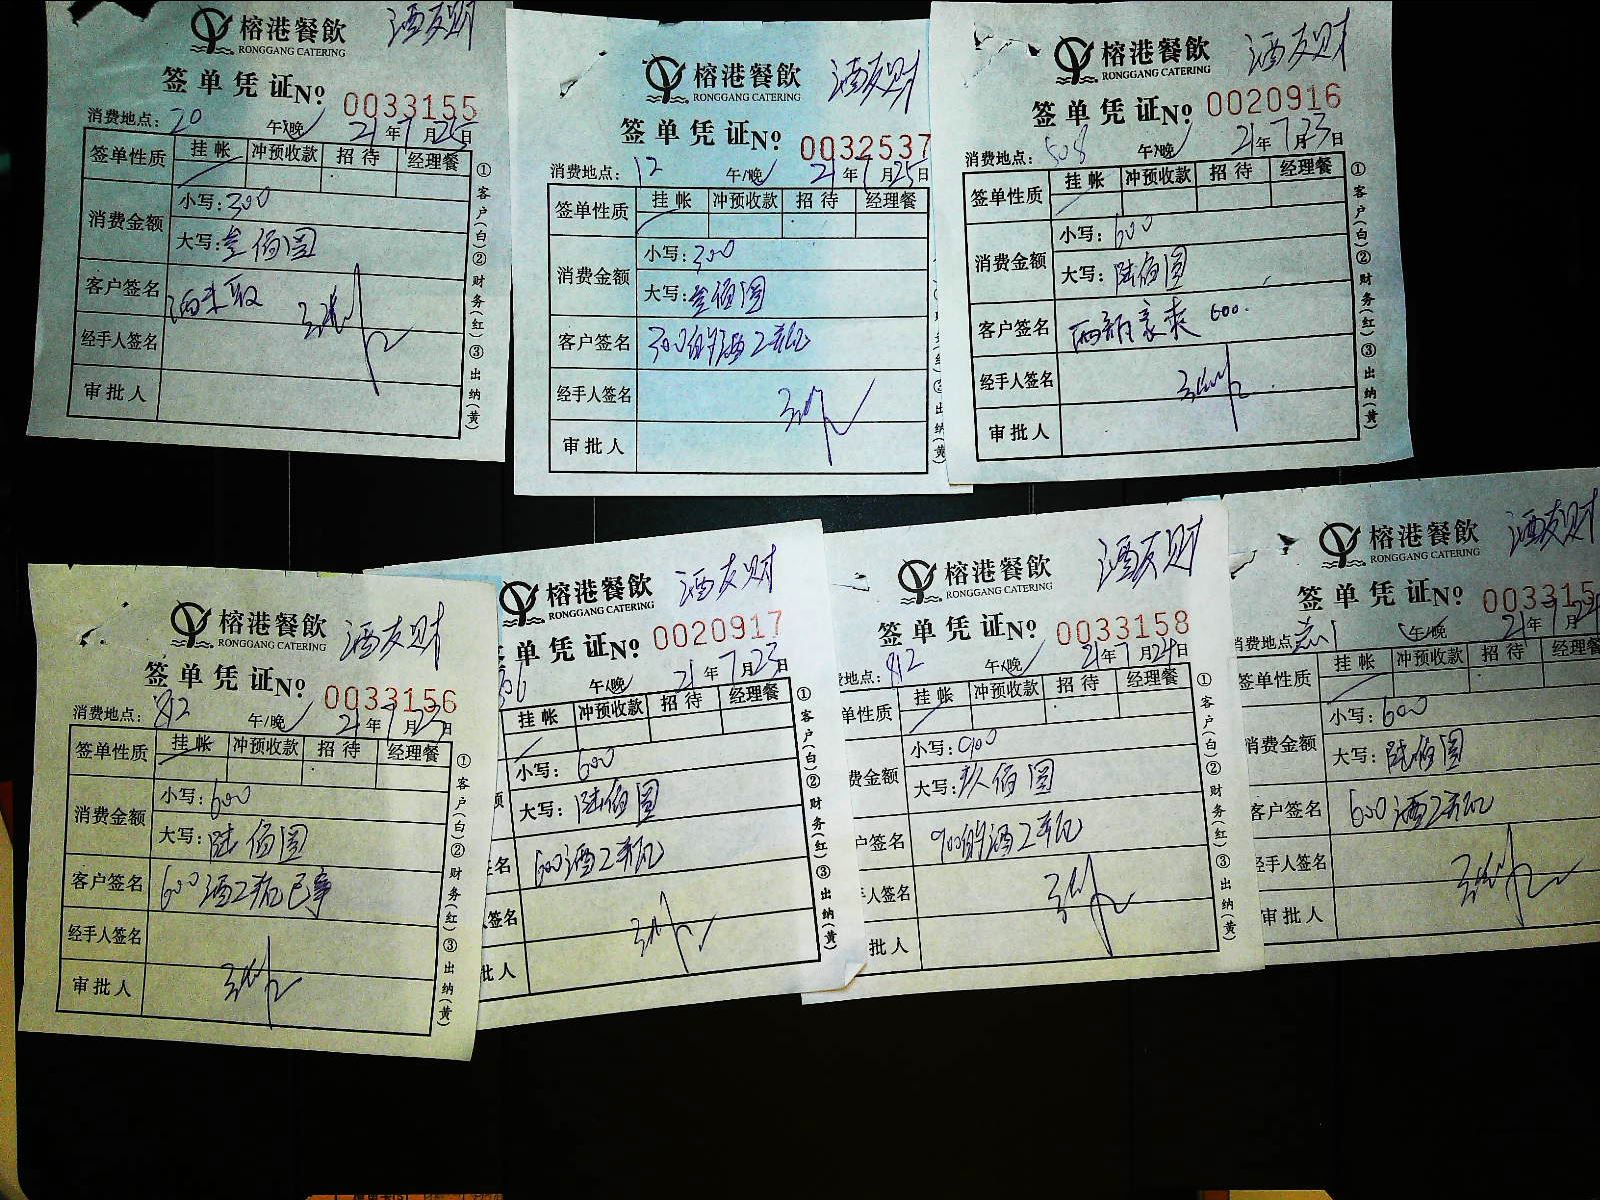 榕港餐飲 酒友财
RONGGANG CATERING
签单凭证 Nº 0033155
消费地点: 20 午/晚 21年7月25日
签单性质 挂帐 冲预收款 招待 经理餐
消费金额 小写: 300
大写: 叁佰圆
客户签名 酒未取
经手人签名
审批人
①客户(白)②财务(红)③出纳(黄)
榕港餐飲 酒友财
RONGGANG CATERING
签单凭证 Nº 0032537
消费地点: 12 午/晚 21年7月25日
签单性质 挂帐 冲预收款 招待 经理餐
消费金额 小写: 300
大写: 叁佰圆
客户签名 300的酒2瓶
经手人签名
审批人
榕港餐飲 酒友财
RONGGANG CATERING
签单凭证 Nº 0020916
消费地点: 508 午/晚 21年7月23日
签单性质 挂帐 冲预收款 招待 经理餐
消费金额 小写: 600
大写: 陆佰圆
客户签名 600.
经手人签名
审批人
①客户(白)②财务(红)③出纳(黄)
榕港餐飲 酒友财
RONGGANG CATERING
签单凭证 Nº 0033156
消费地点: 812 午/晚 21年7月23日
签单性质 挂帐 冲预收款 招待 经理餐
消费金额 小写: 600
大写: 陆佰圆
客户签名 600酒2瓶已拿
经手人签名
审批人
①客户(白)②财务(红)③出纳(黄)
榕港餐飲 酒友财
RONGGANG CATERING
单凭证 Nº 0020917
午/晚 21年7月23日
挂帐 冲预收款 招待 经理餐
小写: 600
大写: 陆佰圆
名 600酒2瓶
签名
批人
①客户(白)②财务(红)③出纳(黄)
榕港餐飲 酒友财
RONGGANG CATERING
签单凭证 Nº 0033158
地点: 812 午/晚 21年7月24日
单性质 挂帐 冲预收款 招待 经理餐
费金额 小写: 900
大写: 玖佰圆
户签名 900的酒2瓶
手人签名
批人
①客户(白)②财务(红)③出纳(黄)
榕港餐飲 酒友财
RONGGANG CATERING
签单凭证 Nº 003315
消费地点: 午/晚 21年7月24
签单性质 挂帐 冲预收款 招待 经理餐
消费金额 小写: 600
大写: 陆佰圆
客户签名 600酒2瓶
经手人签名
审批人